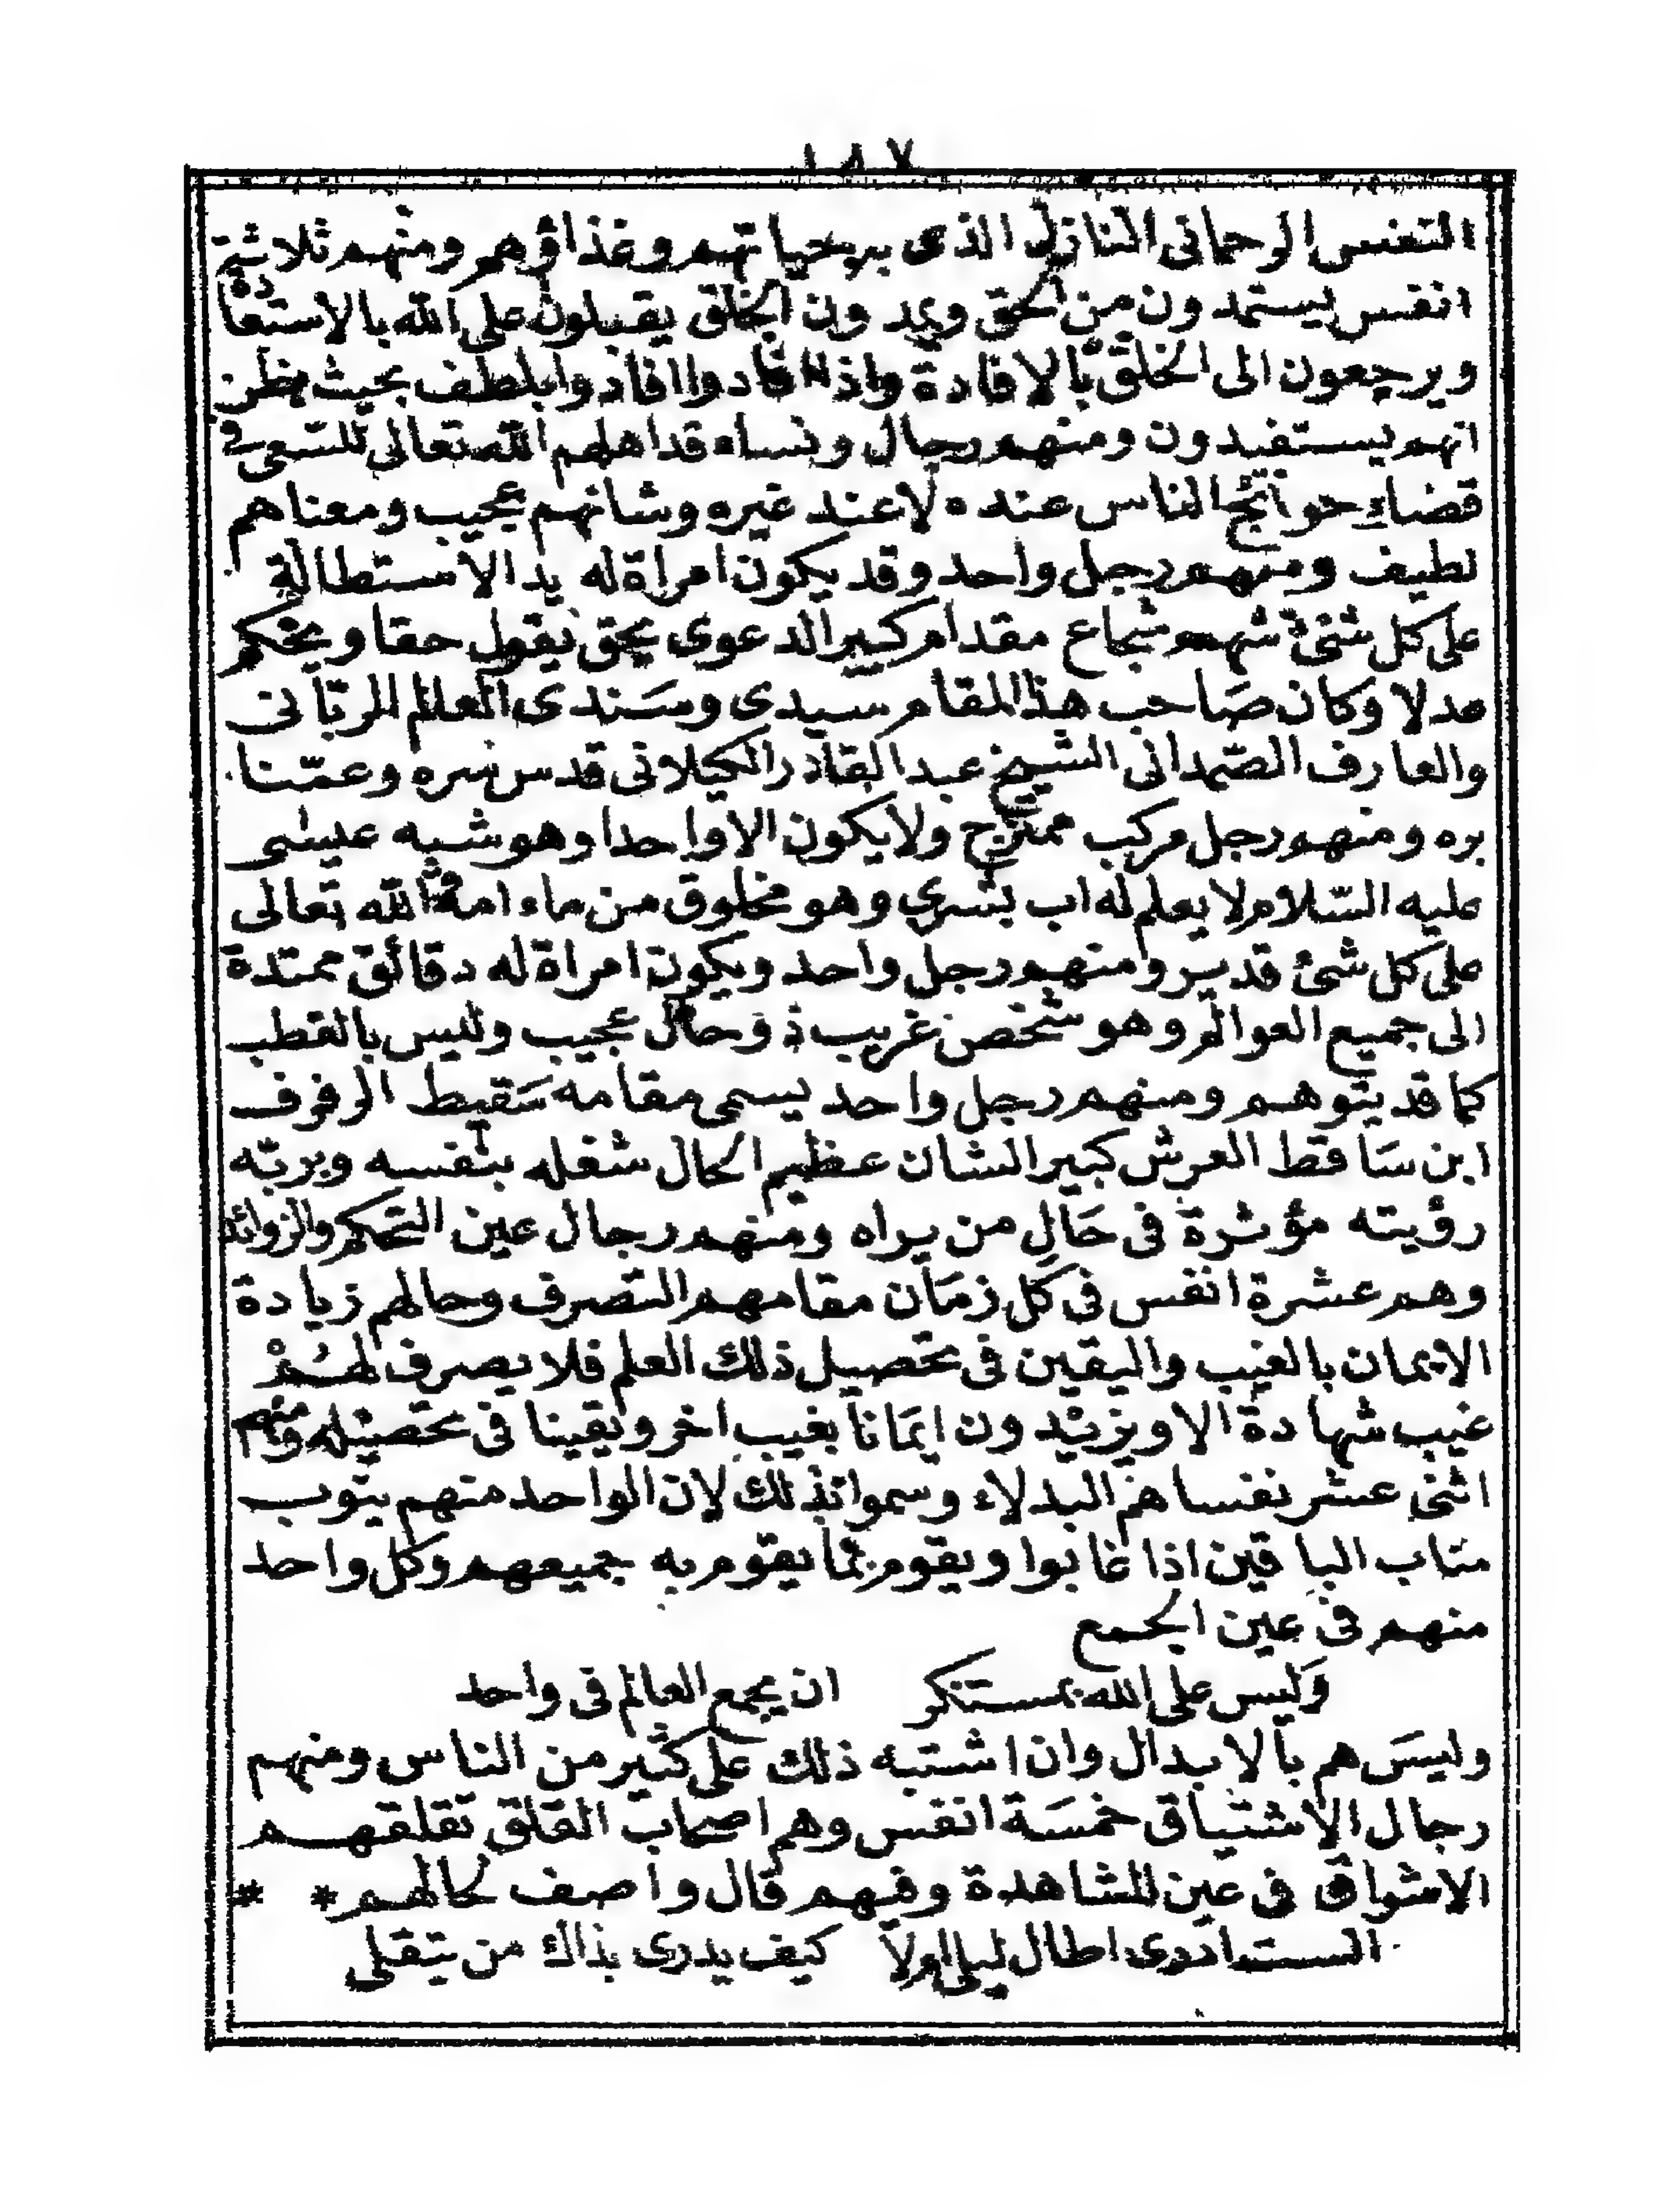 ١٨٧
النفس الرحمانى النازل الذى به حياتهم وغذاؤهم ومنهم ثلاثة
انفس يستمدون من الحق ويمدون الخلق يقبلون على الله بالاستفادة
ويرجعون الى الخلق بالافادة واذا افادوا افادوا بلطف بحيث يظن
انهم يستفيدون ومنهم رجال ونساء قد اهلهم الله تعالى للسعى فى
قضاء حوائج الناس عنده لا عند غيره وشانهم عجيب ومعناهم
لطيف ومنهم رجل واحد وقد يكون امراة له يد الاستطالة
على كل شئ شهم شجاع مقدام كبير الدعوى بحق يقول حقا ويحكم
عدلا وكان صَاحب هذا المقام سيدى وسَندى العالم الربّانى
والعارف الصّمدانى الشيخ عبد القادر الكيلانى قدس سره وعمّنا
بره ومنهم رجل مركب ممتزج ولا يكون الا واحدا وهو شبيه عيسى
عليه السّلام لا يعلم له اب بشري وهو مخلوق من ماء امه والله تعالى
على كل شئ قدير ومنهم رجل واحد ويكون امراة له دقائق ممتدة
الى جميع العوالم وهو شخص غريب ذو حال عجيب وليس بالقطب
كما قد يتوهم ومنهم رجل واحد يسمى مقامه سَقيط الرفرف
ابن سَاقط العرش كبير الشان عظيم الحال شغله بنفسه وبربّه
رؤيته مؤثرة فى حَالِ من يراه ومنهم رجال عين التحكم والزوائد
وهم عشرة انفس فى كل زمَان مقامهم التصرف وحالهم زيادة
الايمان بالغيب واليقين فى تحصيل ذلك العلم فلا يصرف لهُمْ
غيب شهادة الا ويزيدون ايمَانا بغيب اخر ويقينا فى تحصيله ومنهم
اثنى عشر نفسا هم البدلاء وسموا بذلك لان الواحد منهم ينوب
مناب الباقين اذا غابوا ويقوم بما يقوم به جميعهم وكل واحد
منهم فى عين الجمع
وَليس على الله بمستنكر ان يجمع العالم فى واحد
وليسَ هم بالابدال وان اشتبه ذلك على كثير من الناس ومنهم
رجال الاشتياق خمسَة انفس وهم اصحاب القلق تقلقهم
الاشواق فى عين المشاهدة وفيهم قال واصف لحالهم * *
لست ادرى اطال ليلى ام لا كيف يدرى بذاك من يتقلى